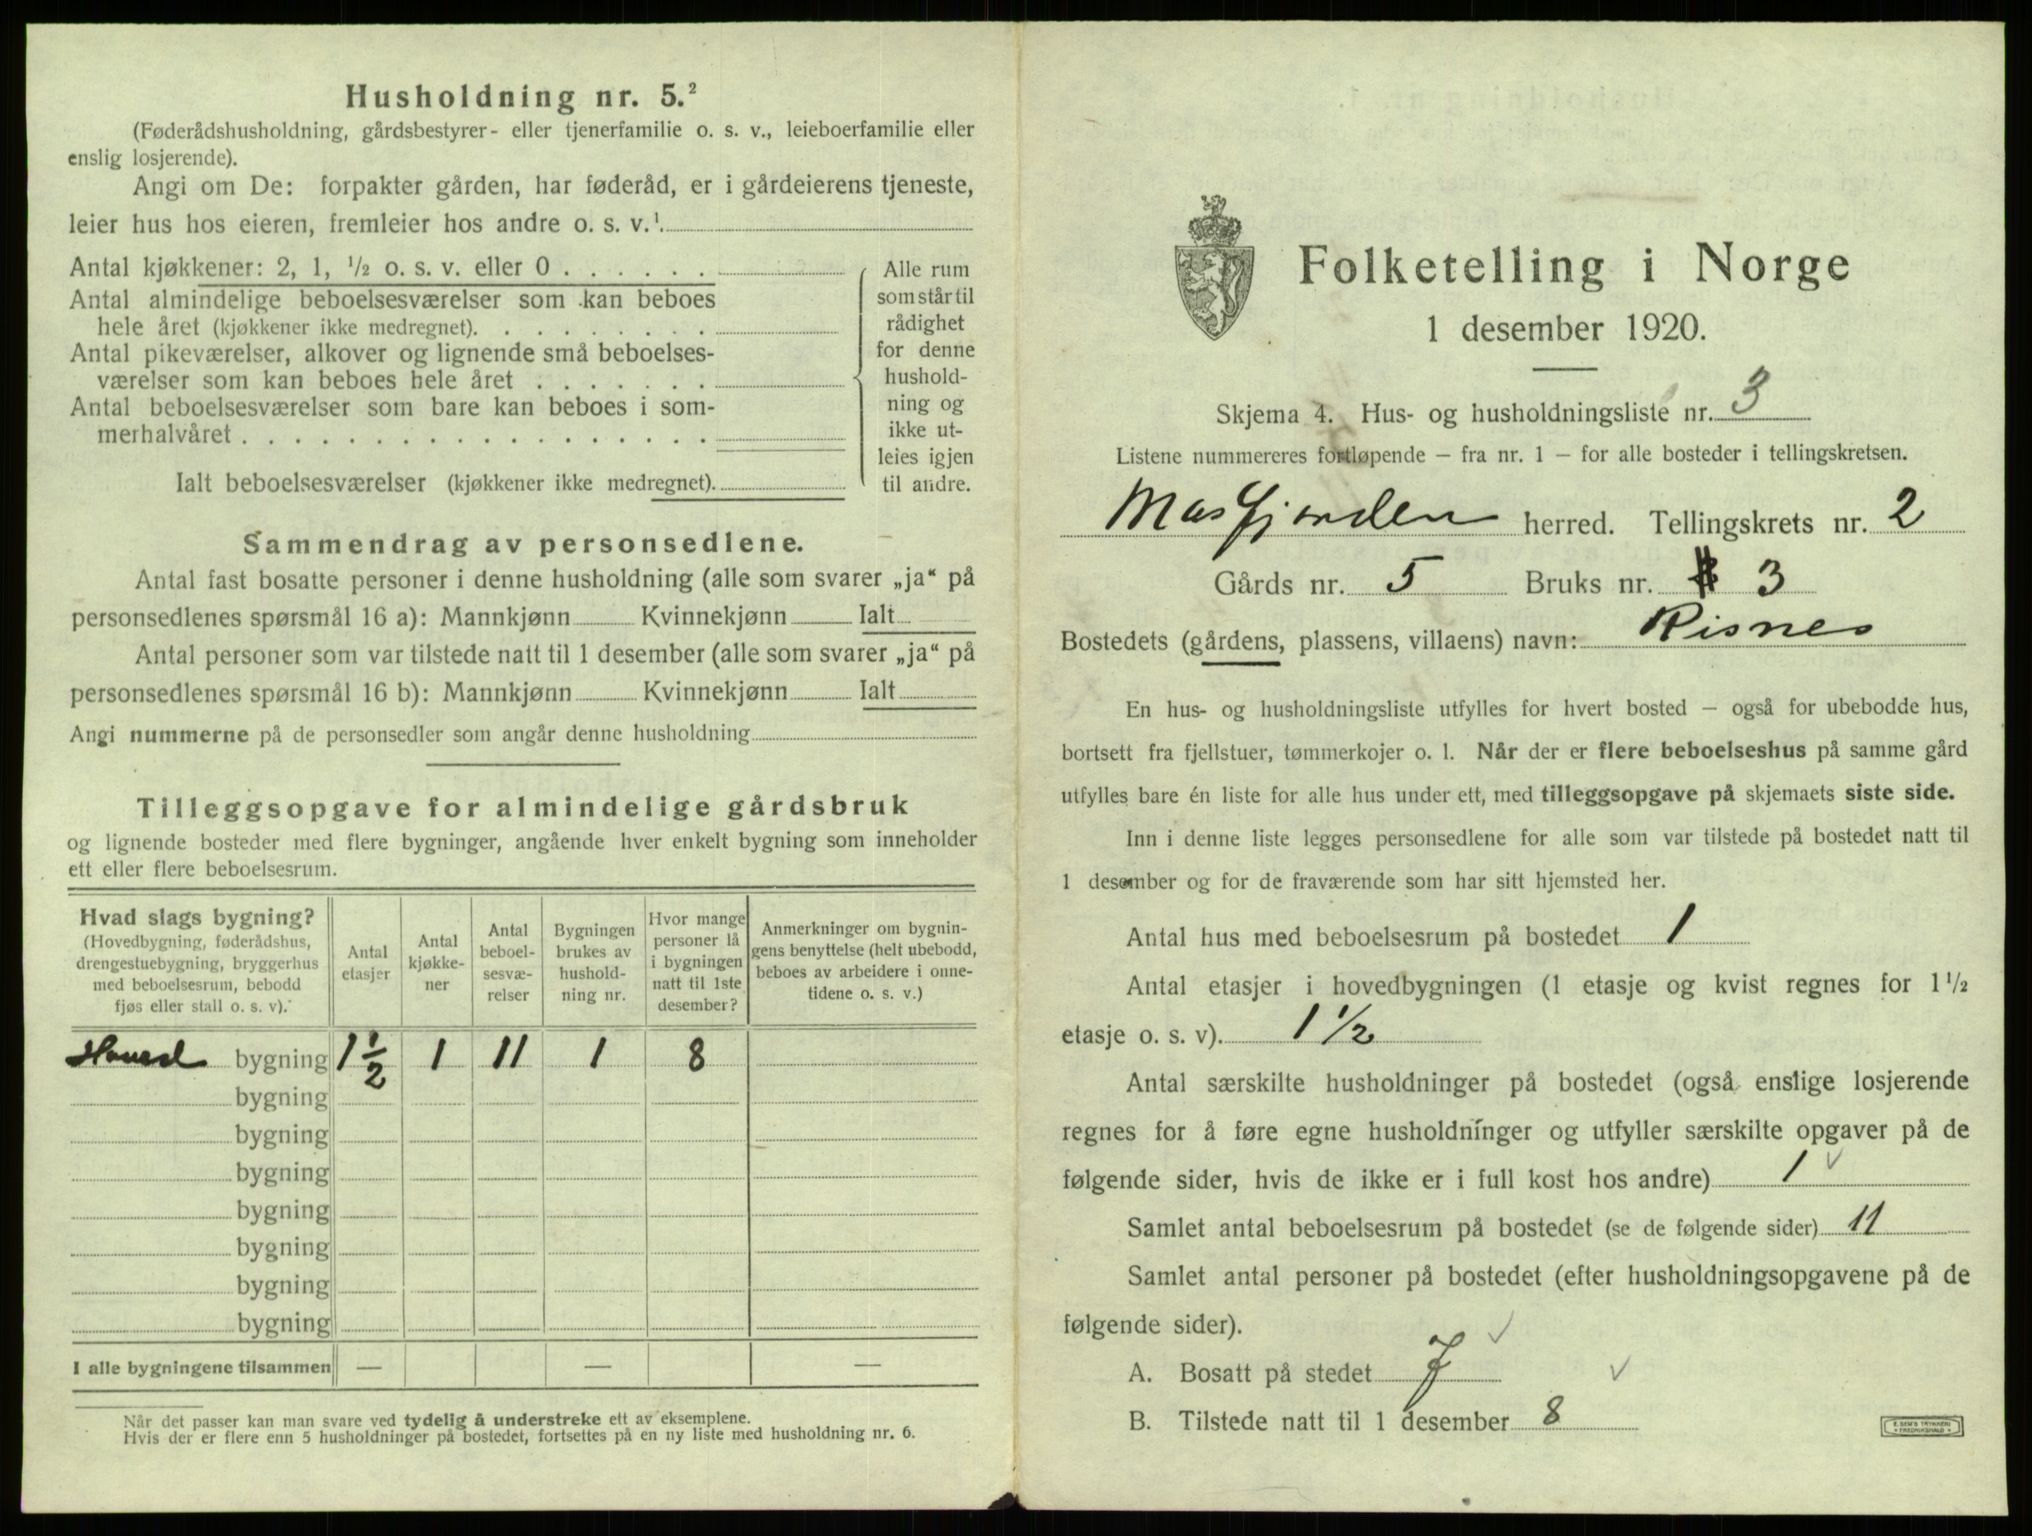 Husholdning nr. 5.²
(Føderådshusholdning, gårdsbestyrer- eller tjenerfamilie o. s. v., leieboerfamilie eller
enslig losjerende).
Angi om De: forpakter gården, har føderåd, er i gårdeierens tjeneste,
leier hus hos eieren, fremleier hos andre o. s. v.¹
Antal kjøkkener: 2, 1, ½ o. s. v. eller 0 . . . . . .
Antal almindelige beboelsesværelser som kan beboes
hele året (kjøkkener ikke medregnet). . . . . . . . .
Antal pikeværelser, alkover og lignende små beboelses-
værelser som kan beboes hele året . . . . . . .
Antal beboelsesværelser som bare kan beboes i som-
merhalvåret . . . . . . . . . . . . . . . . . .
Ialt beboelsesværelser (kjøkkener ikke medregnet).
Alle rum
som står til
rådighet
for denne
hushold-
ning og
ikke ut-
leies igjen
til andre.
Sammendrag av personsedlene.
Antal fast bosatte personer i denne husholdning (alle som svarer „ja“ på
personsedlenes spørsmål 16 a): Mannkjønn Kvinnekjønn Ialt
Antal personer som var tilstede natt til 1 desember (alle som svarer „ja“ på
personsedlenes spørsmål 16 b): Mannkjønn Kvinnekjønn Ialt
Angi nummerne på de personsedler som angår denne husholdning
Tilleggsopgave for almindelige gårdsbruk
og lignende bosteder med flere bygninger, angående hver enkelt bygning som inneholder
ett eller flere beboelsesrum.
Hvad slags bygning?
(Hovedbygning, føderådshus,
drengestuebygning, bryggerhus
med beboelsesrum, bebodd
fjøs eller stall o. s. v).
Antal
etasjer
Antal
kjøkke-
ner
Antal
beboel-
sesvæ-
relser
Bygningen
brukes av
hushold-
ning nr.
Hvor mange
personer lå
i bygningen
natt til 1ste
desember?
Anmerkninger om bygnin-
gens benyttelse (helt ubebodd,
beboes av arbeidere i onne-
tidene o. s. v.)
Hoved bygning 1½ 1 11 1 8
bygning
bygning
bygning
bygning
bygning
bygning
bygning
I alle bygningene tilsammen — — —
Når det passer kan man svare ved tydelig å understreke ett av eksemplene.
Hvis der er flere enn 5 husholdninger på bostedet, fortsettes på en ny liste med husholdning nr. 6.
Folketelling i Norge
1 desember 1920.
Skjema 4. Hus- og husholdningsliste nr. 3
Listene nummereres fortløpende – fra nr. 1 – for alle bosteder i tellingskretsen.
Masfjorden herred. Tellingskrets nr. 2
Gårds nr. 5 Bruks nr. 3
Bostedets (gårdens, plassens, villaens) navn: Risnes
En hus- og husholdningsliste utfylles for hvert bosted – også for ubebodde hus,
bortsett fra fjellstuer, tømmerkojer o. l. Når der er flere beboelseshus på samme gård
utfylles bare én liste for alle hus under ett, med tilleggsopgave på skjemaets siste side.
Inn i denne liste legges personsedlene for alle som var tilstede på bostedet natt til
1 desember og for de fraværende som har sitt hjemsted her.
Antal hus med beboelsesrum på bostedet 1
Antal etasjer i hovedbygningen (1 etasje og kvist regnes for 1½
etasje o. s. v). 1½
Antal særskilte husholdninger på bostedet (også enslige losjerende
regnes for å føre egne husholdninger og utfyller særskilte opgaver på de
følgende sider, hvis de ikke er i full kost hos andre) 1 ✓
Samlet antal beboelsesrum på bostedet (se de følgende sider) 11
Samlet antal personer på bostedet (efter husholdningsopgavene på de
følgende sider). ✓
A. Bosatt på stedet 7 ✓
B. Tilstede natt til 1 desember 8
E. SEM'S TRYKKERI
FREDRIKSHALD